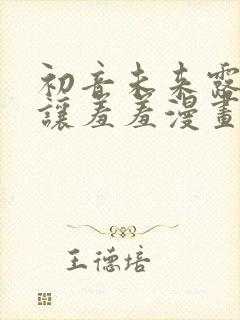 初音未来露
讓羞羞漫畫
王德培